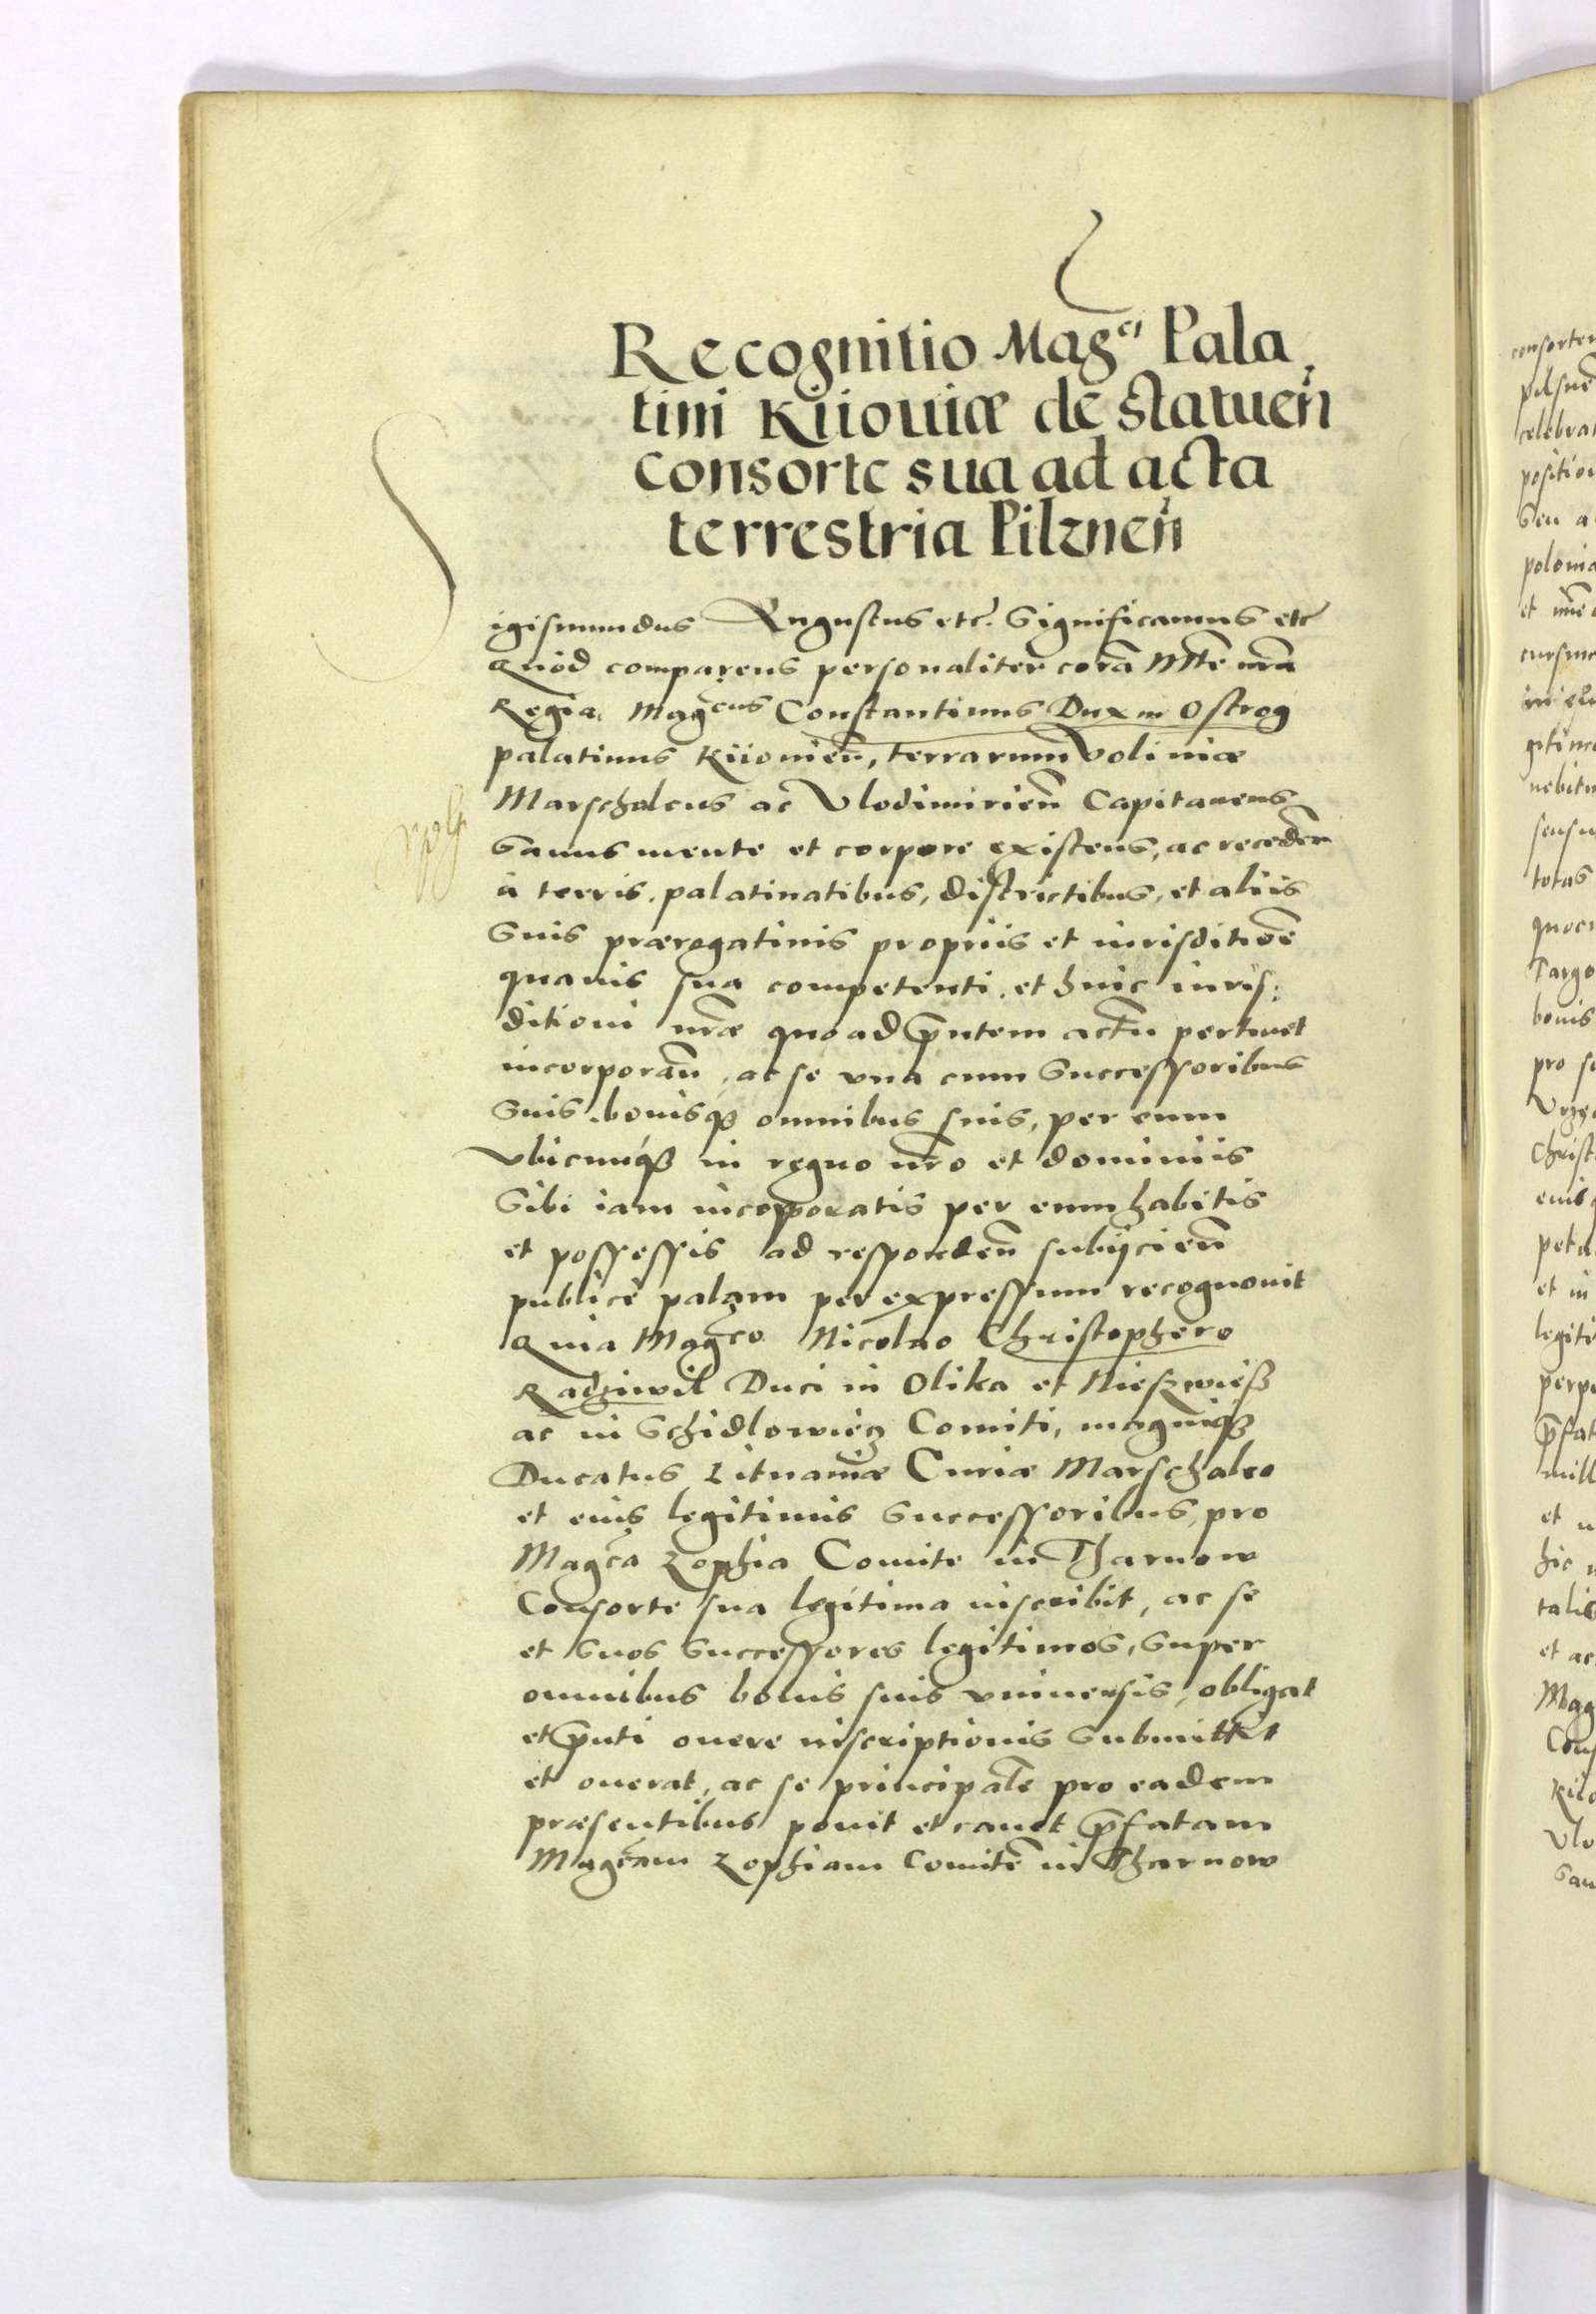 Recognitio Mag^ci Pala
tini Kiiouiæ de statuen̄
consorte sua ad acta
terrestria Pilznen̄
Sigismundus Augustus etc. Significamus etc
Quod comparens personaliter corā Mtē nrā
Regia, Mag^cus Constantinus Dux in Ostrog
palatinus Kiiouien̄, terrarum Voliniæ
Marschalcus ac Vlodimirien̄ Capitaneus
Sanus mente et corpore existens, ac receden̄
à terris, palatinatibus, districtibus, et aliis
Suis prærogatiuis propriis et iurisditiōe
quauis sua competenti, et huic iuris:
ditioni nrāe quo ad p̄ntem actū pertinet
incorporan̄, ac se vna cum Successoribus
Suis, bonisqȝ omnibus suis, per eum
vbicunqȝ in regno nrō et dominiis
Sibi iam incorporatis per eum habitis
et possessis ad responden̄ subijcien̄
publicè palam per expressum recognouit
Quia Mag^co Nicolao Christophero
Radziwil Duci in Olika et Nieszwieß
ac in Schidlowiecz Comiti, magniqȝ
Ducatus Lituaniæ Curiæ Marschalco
et eius legitimis Successoribus, pro
Mag^ca Zophia Comite in Tharnow
Consorte sua legitima inscribit, ac se
et Suos Successores legitimos, Super
omnibus bonis suis vniuersis, obligat
et p̄nti onere inscriptionis Submittit
et onerat, ac se principalē pro eadem
præsentibus ponit et cauet p̄fatam
Mag^cam Zophiam Comitē in Tharnow
consorter
pilsnē
celebrat
position
Seu a
polonia
et
nebitu
sensu
totas
quoc
Targo
bonis
pro s
Christ
eius
et in
legiti
perpe
p̄fat
mill
et
hic
talis
et ac
Mag
Cons
Vlo
San